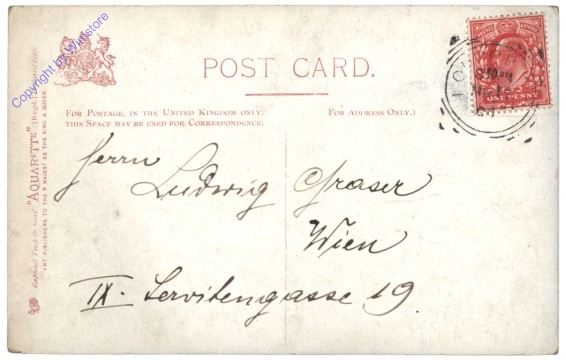 POST CARD.
FOR POSTAGE, IN THE UNITED KINGDOM ONLY,
THIS SPACE MAY BE USED FOR CORRESPONDENCE.
FOR ADDRESS ONLY.)
Herrn
Ludwig Graser
Wien
IX. Servitengasse 19.
ONE PENNY
Raphael Tuck & Sons' "AQUARETTE" [Regd.]
ART PUBLISHERS TO THEIR MAJESTIES THE KING & QUEEN
Copyright by Winstore